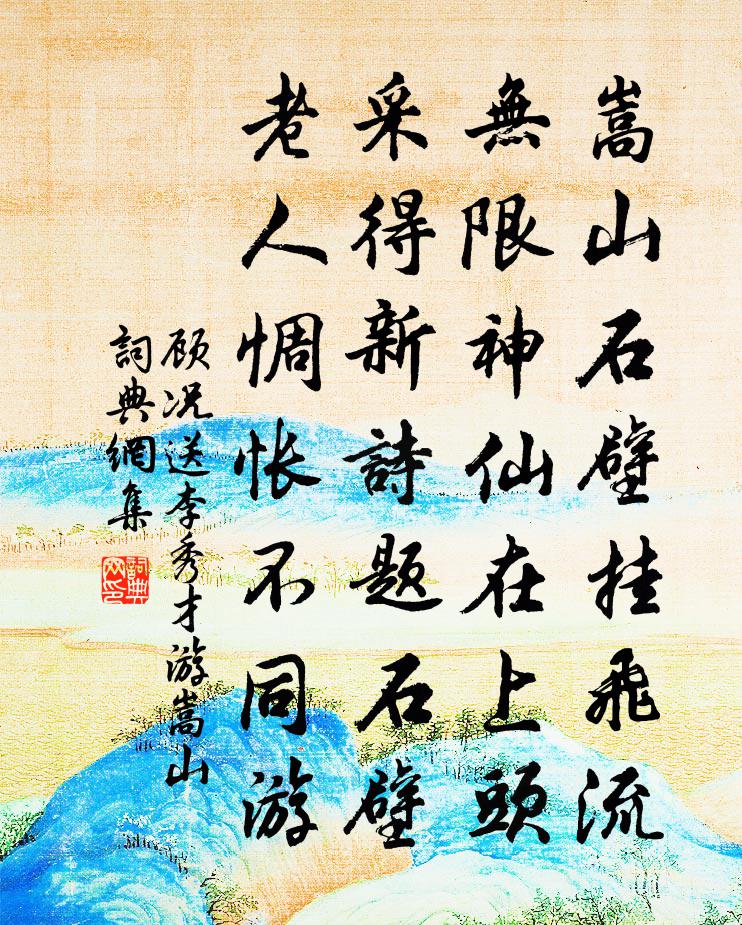 嵩山石壁挂飛流
無限神仙在上頭
采得新詩题石壁
老人惆怅不同游
顾况送李秀才游嵩山
詞典網集
詞典
网印